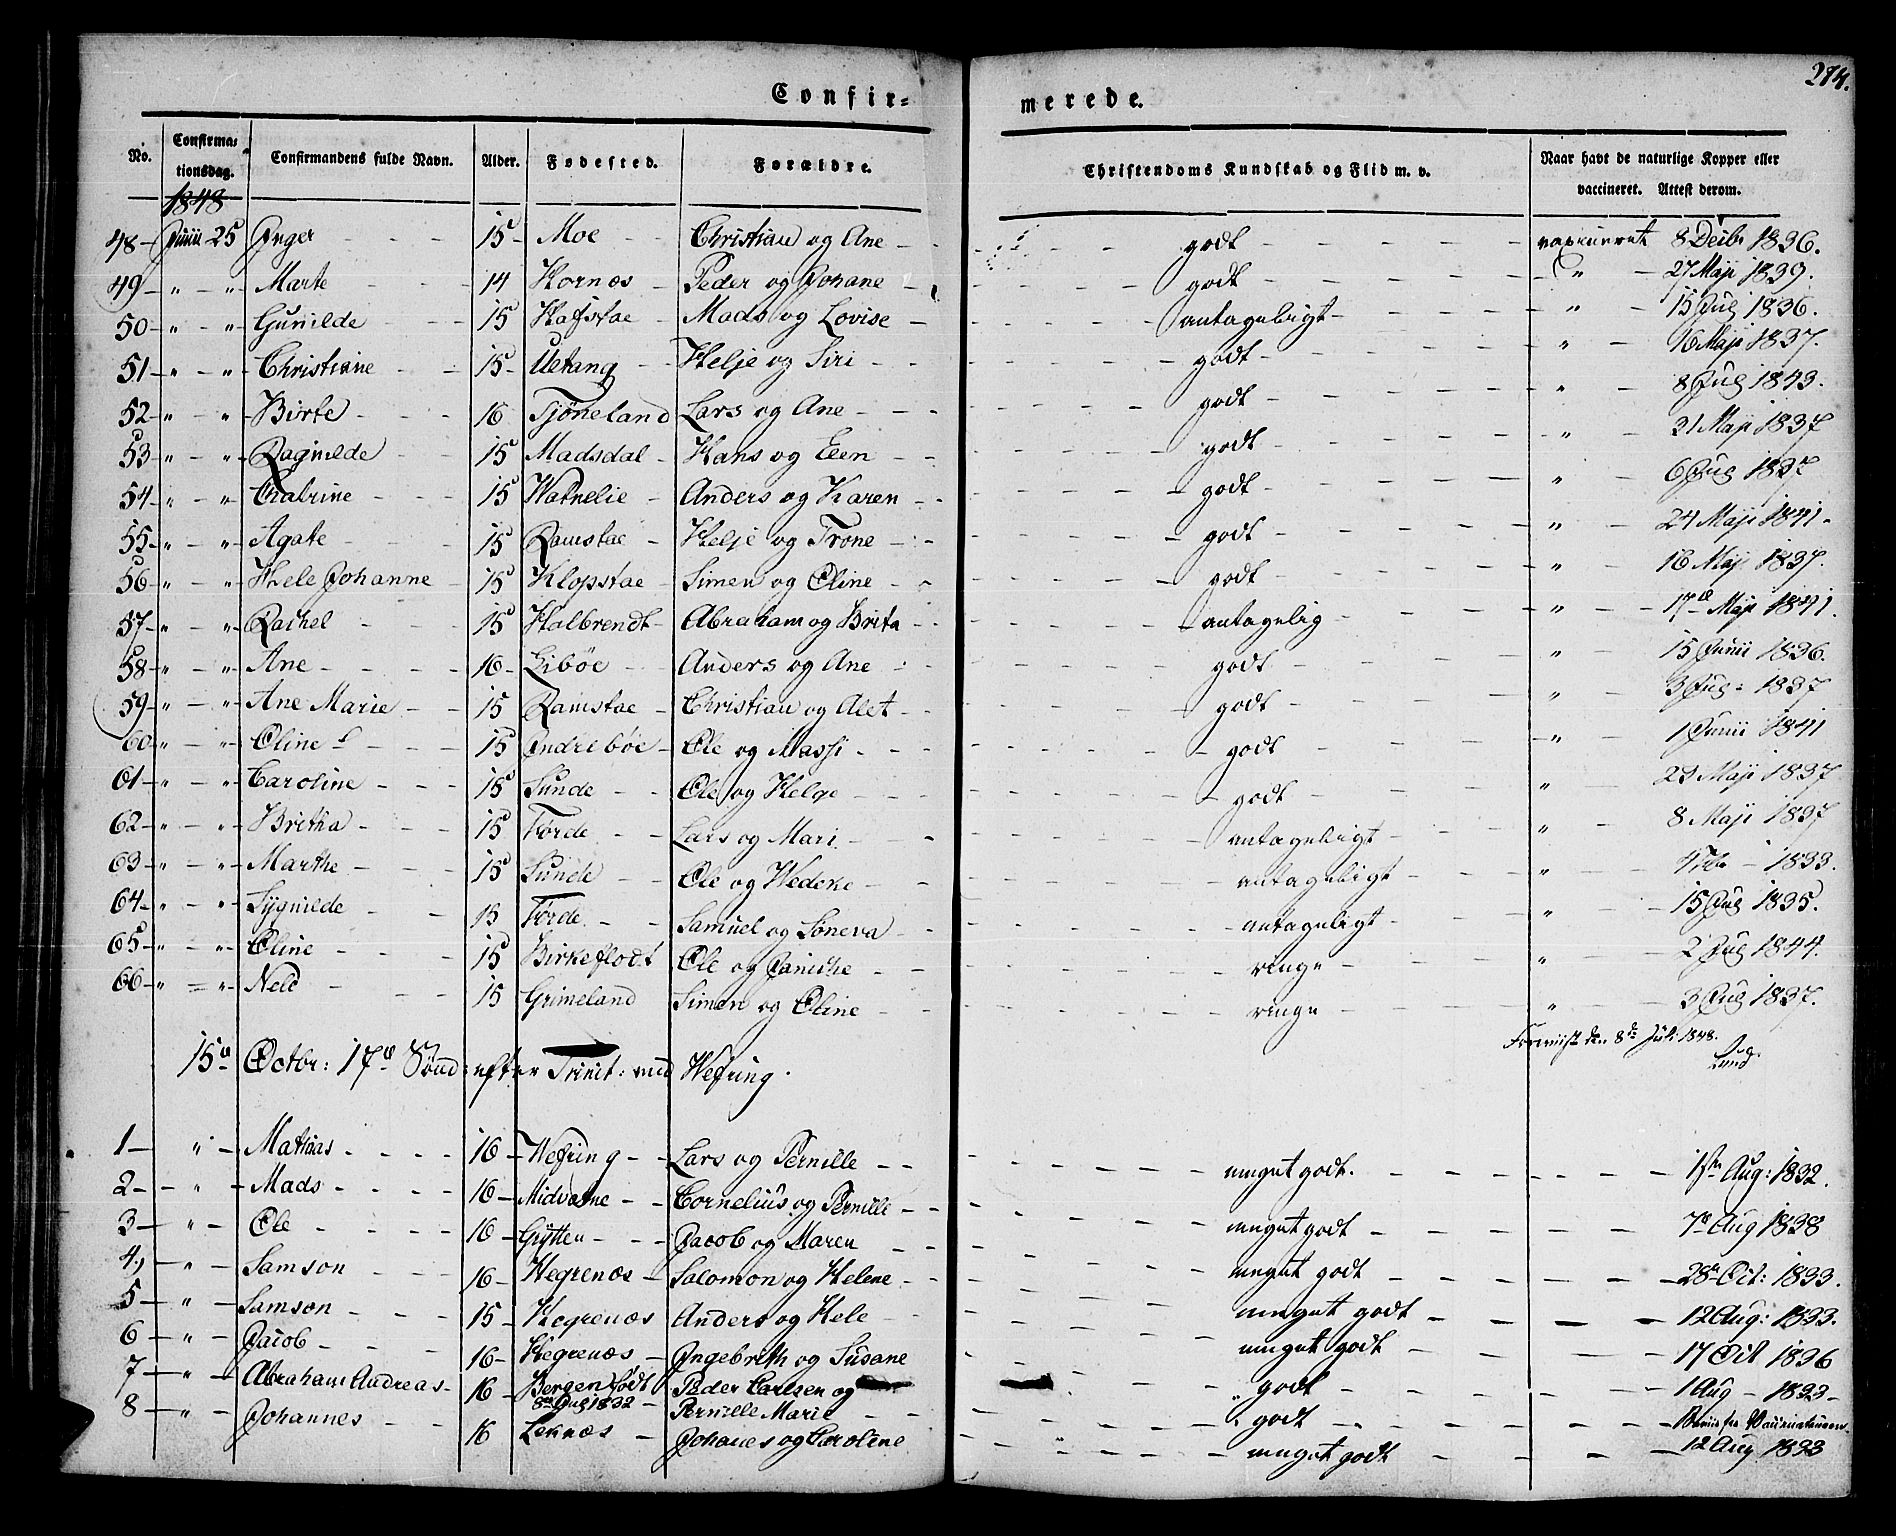 274.
Confir- merede.
No. Confirma-tionsdag. Confirmandens fulde Navn. Alder. Fødested. Forældre. Christendoms Kundskab og Flid m. v. Naar havt de naturlige Kopper eller vaccineret. Attest derom.
1848
48 - Junii 25 Inger 15 - Moe Christian og Ane godt vaxineret 8 Decbr 1836.
49 - " - " - Marte 14 Hornæs Peder og Johane godt " 27 Maji 1839.
50 - " - " - Gunilde 15 Hafstae Mads og Lovise antageligt " 15 Julj 1836.
51 - " - " - Christiane 15 - Uetang Helje og Siri godt " 16 Maji 1837.
52 - " - " Birte 16 Tjöneland Lars og Ane godt " 8 Julj 1843.
53 - " - " - Ragnilde 15 Madsdal Hans og Elen godt " 21 Maji 1837
54 - " - " - Cathrine 15 Anders og Karen godt " 6 Julj 1837
55 - " - " - Agate 15 Ramstae Helje og Trone godt " 24 Maji 1841.
56 - " - " Hele Johanne 15 Klopstae Simen og Oline godt " 16 Maji 1837.
57 - " - " - Rachel 15 Halbrendt Abraham og Brita antagelig " 17de Maji 1841.
58 - " - " - Ane 16 - Libøe Anders og Ane godt " 15 Junii 1836.
59 - " - " - Ane Marie 15 Ramstae Christian og Alet godt " 3 Julj 1837
60 - " - " - Oline 15 Indrebøe Ole og Massi godt " 1 Junii 1841
61 - " - " - Caroline 15 Sunde Ole og Helge godt " 23 Maji 1837
62 - " - " - Britha 15 Førde Lars og Mari antageligt " 8 Maji 1837
63 - " - " - Marthe 15 Sunde Ole og Hedeke antageligt " 1833.
64 - " - " - Sygnilde 15 Førde Samuel og Søneva antageligt " 15 Julj 1835.
65 - " - " - Oline 15 Birkeflodt Ole og Janiche ringe " 2 Julj 1844.
66 - " - " - Nele 15 Grimeland Simen og Oline ringe " 3 Julj 1837.
Foreviist den 8de Juli 1848.
Lund
15de Octbr: 17de Sønd: efter Trinit: ved Hefring.
1 - " - Mathias 16 Hefring Lars og Pernille meget godt. 1ste Aug: 1832.
2 - " - Mads 16 - Midvatne Cornelius og Pernille meget godt 7de Aug 1838
3 - " - Ole 16 - Gytten Jacob og Maren meget godt 28de Oct: 1833.
4., - " - Samson 16 - Hegrenæs Salomon og Helene meget godt 12 Aug: 1833.
5 - " - Samson 15 - Hegrenæs Anders og Hele meget godt 17 Oct 1836
6 - " - Jacob 16 - Hegrenæs Ingebreth og Susane godt 1 Aug - 1833 -
7 - " - Abraham Andreas 16 - Bergen født 8de Julj 1832 Peder Carlsen og Pernille Marie godt
8 - " - Johannes 16 Leknæs Johanes og Caroline meget godt 12 Aug 1833